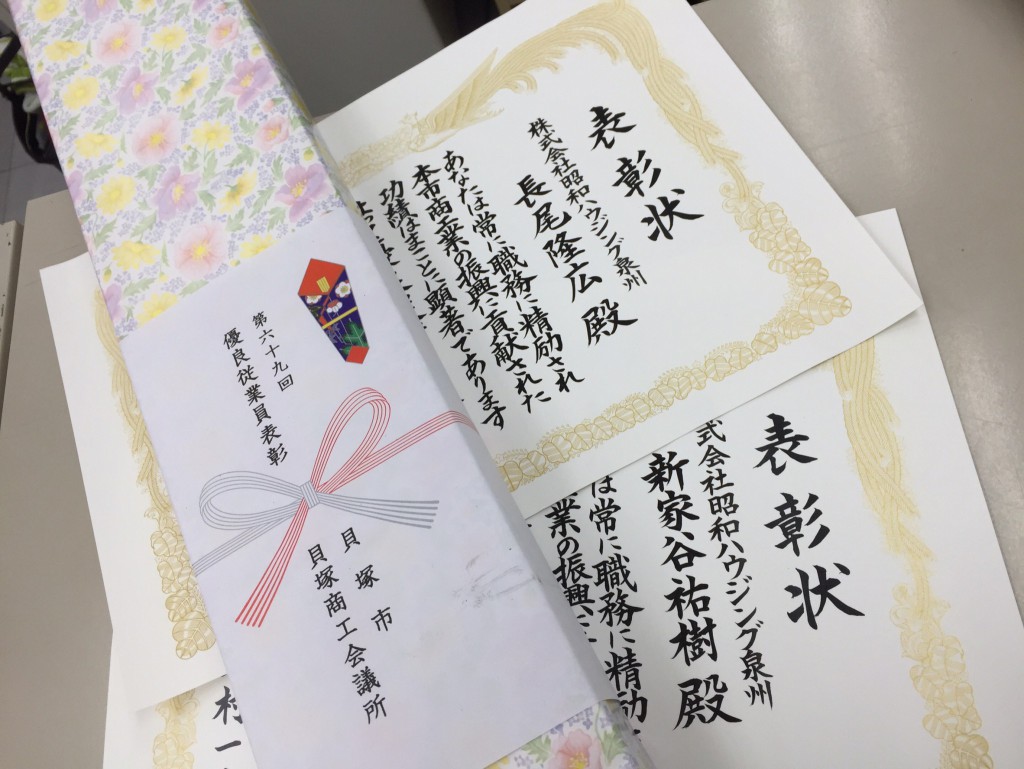 表彰状
株式会社昭和ハウジング泉州
長尾隆広殿
あなたは常に職務に精励され
本市商工業の振興に貢献された
功績はまことに顕著であります
表彰状
式会社昭和ハウジング泉州
新家谷祐樹殿
は常に職務に精励
業の振興に
第六十九回
優良従業員表彰
貝塚市
貝塚商工会議所
村一